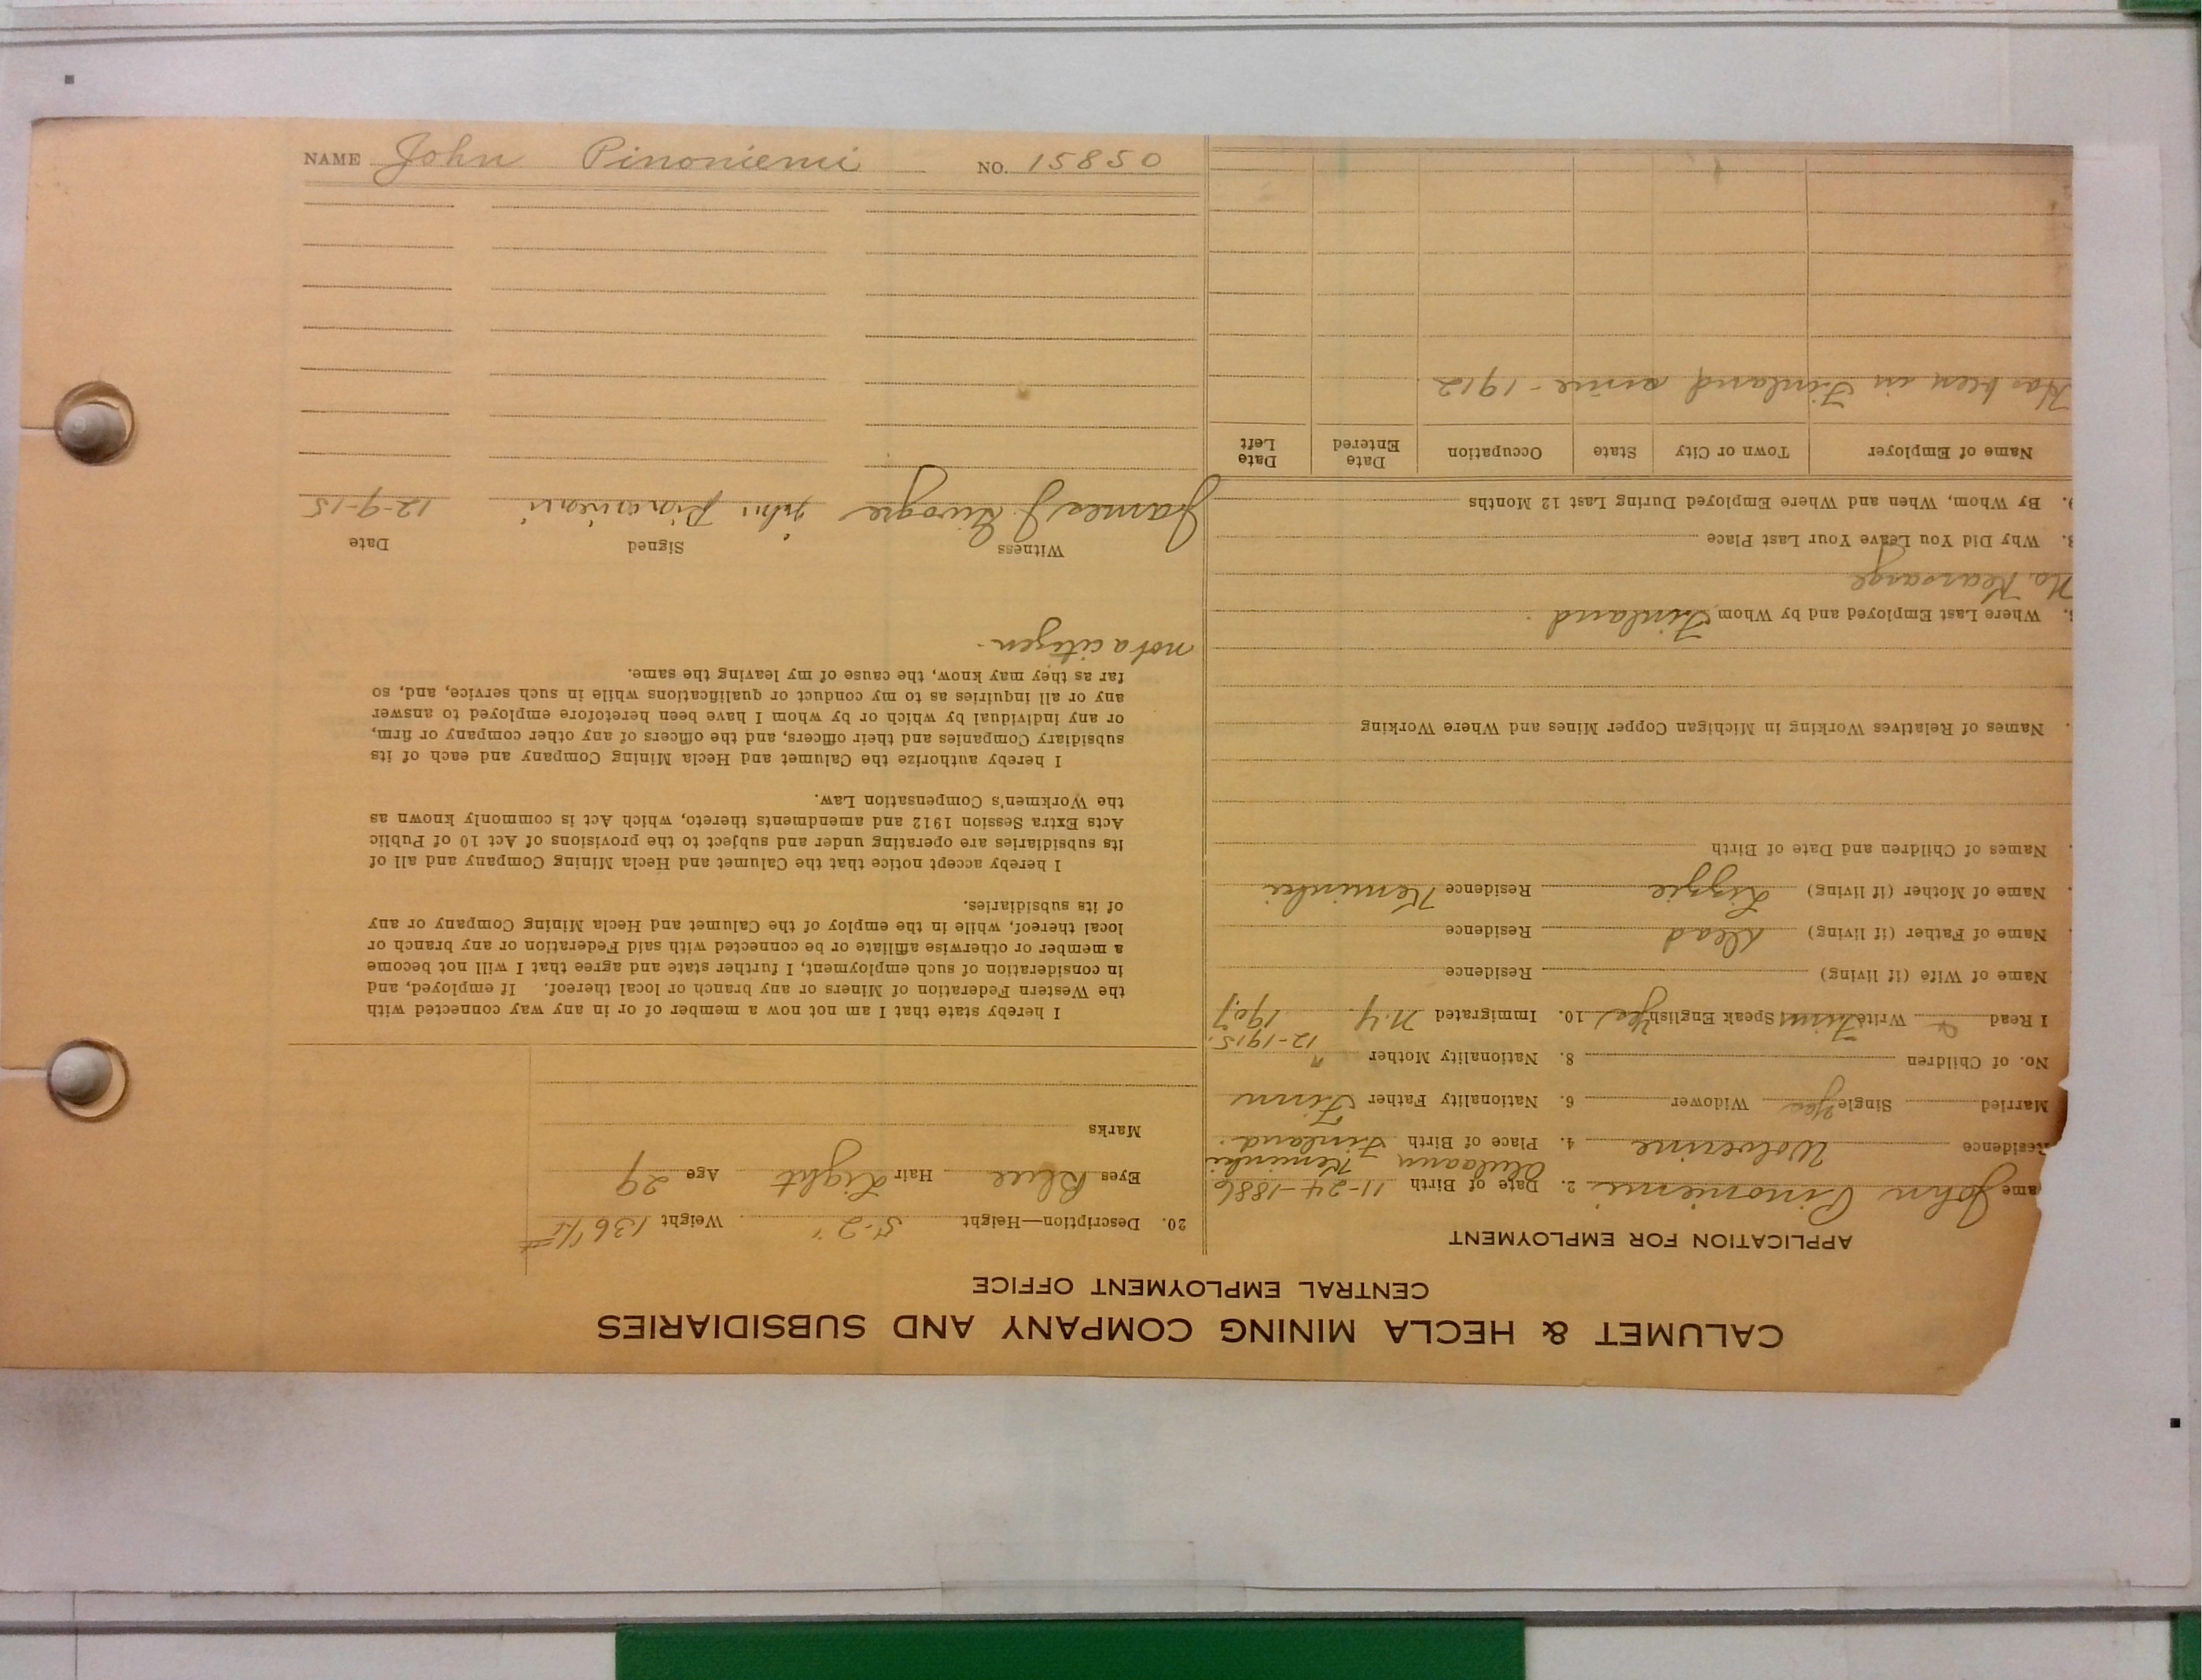 NAME John Pinoniemi NO. 15850
CALUMET & HECLA MINING COMPANY AND SUBSIDIARIES
CENTRAL EMPLOYMENT OFFICE
APPLICATION FOR EMPLOYMENT
ame John Pinoniemi 2. Date of Birth 11-24-1886
Residence Wolverine 4. Place of Birth Finland.
Married Single Yes Widower 6. Nationality Father Finn
No. of Children 8. Nationality Mother "
12-1915.
I Read Write Finn Speak English Yes 10. Immigrated N.Y. 1907
Name of Wife (if living) Residence
Name of Father (if living) Dead Residence
Name of Mother (if living) Lizzie Residence
Names of Children and Date of Birth
Names of Relatives Working in Michigan Copper Mines and Where Working
Where Last Employed and by Whom Finland.
No. Kearsarge
Why Did You Leave Your Last Place
By Whom, When and Where Employed During Last 12 Months
Name of Employer Town or City State Occupation Date Entered Date Left
Has been in Finland since - 1912
20. Description—Height 5-2" Weight 136
Eyes Blue Hair Light Age 29
Marks
I hereby state that I am not now a member of or in any way connected with
the Western Federation of Miners or any branch or local thereof. If employed, and
in consideration of such employment, I further state and agree that I will not become
a member or otherwise affiliate or be connected with said Federation or any branch or
local thereof, while in the employ of the Calumet and Hecla Mining Company or any
of its subsidiaries.
I hereby accept notice that the Calumet and Hecla Mining Company and all of
its subsidiaries are operating under and subject to the provisions of Act 10 of Public
Acts Extra Session 1912 and amendments thereto, which Act is commonly known as
the Workmen's Compensation Law.
I hereby authorize the Calumet and Hecla Mining Company and each of its
subsidiary Companies and their officers, and the officers of any other company or firm,
or any individual by which or by whom I have been heretofore employed to answer
any or all inquiries as to my conduct or qualifications while in such service, and, so
far as they may know, the cause of my leaving the same.
not a citizen-
Witness Signed Date
James J John 12-9-15